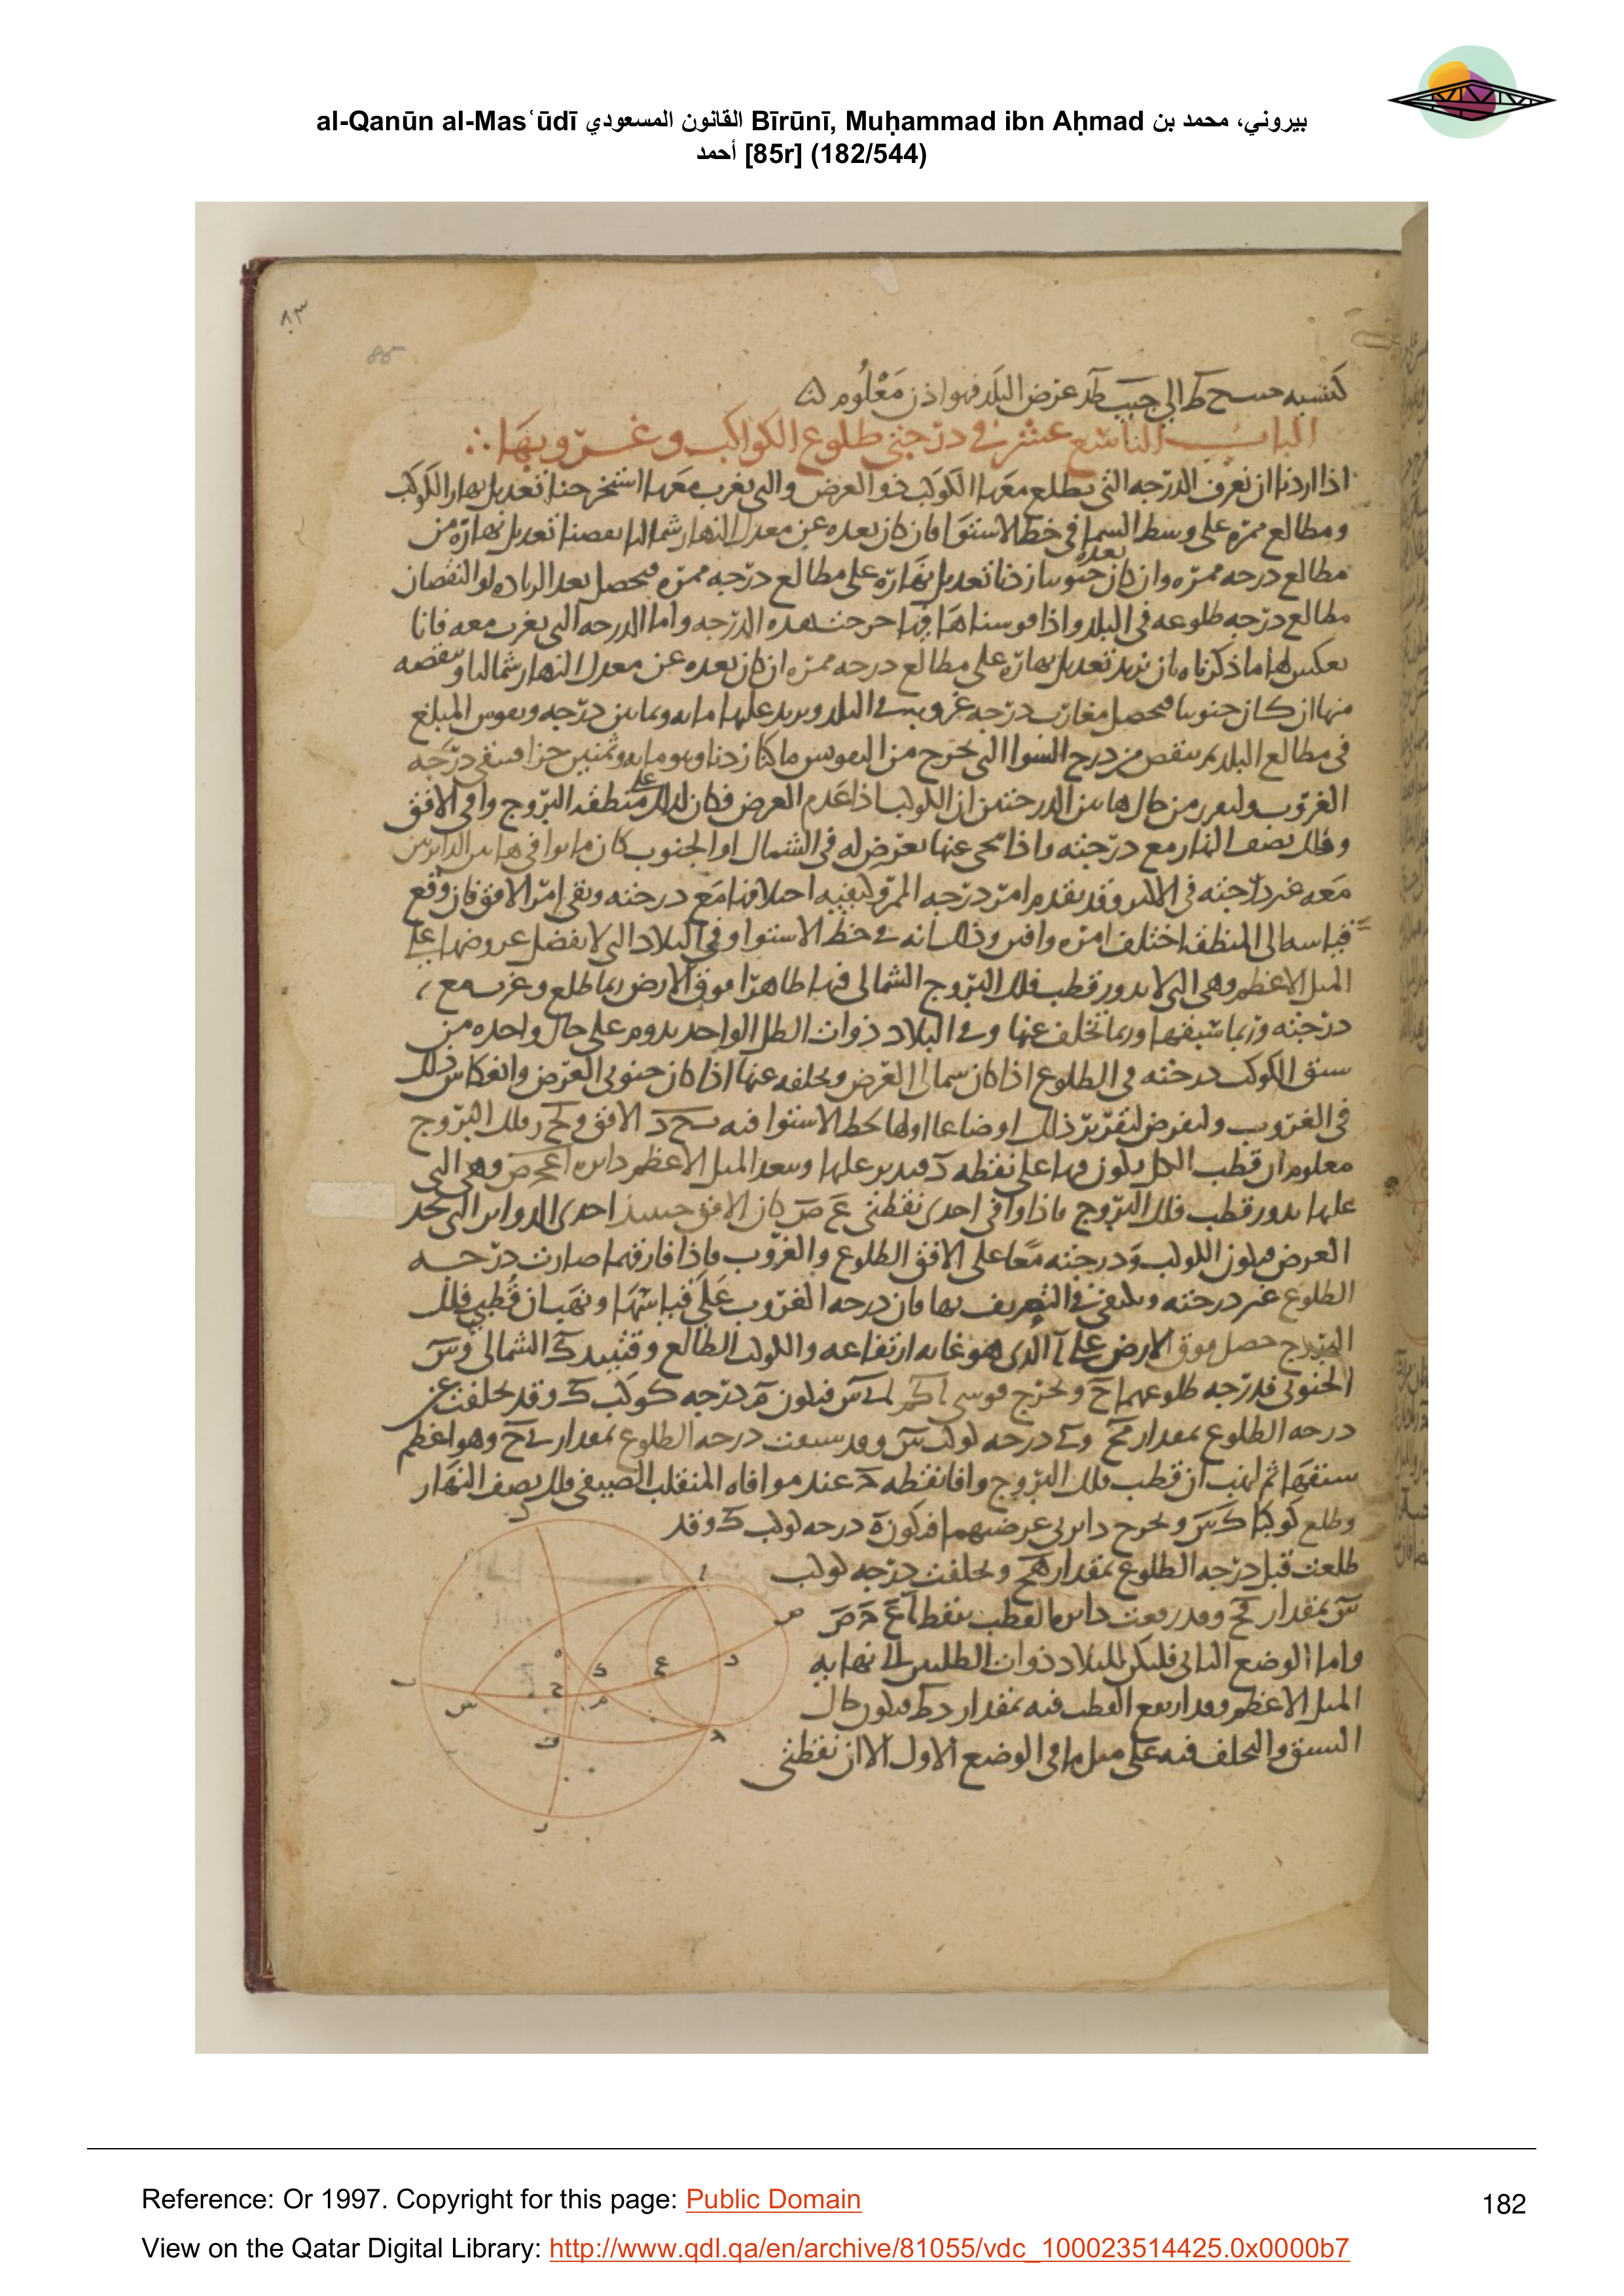 al-Qanūn al-Mas‘ūdī القانون المسعودي Bīrūnī, Muḥammad ibn Aḥmad بيروني، محمد بن
أحمد [85r] (182/544)
٨٣
85
كنسبه جيب ح ط الى جيب ط د عرض البلد فهو اذن معلوم
الباب التاسع عشر في درجتي طلوع الكواكب وغروبها
اذا اردنا ان نعرف الدرجه التي يطلع معها الكوكب ذو العرض والتي يغرب معها استخرجنا تعديل نهار الكوكب
ومطالع ممره على وسط السما في خط الاستوا فان كان بعده عن معدل النهار شماليا نقصنا تعديل نهاره من
مطالع درجه ممره وان كان بعده جنوبيا زدنا تعديل نهاره على مطالع درجه ممره فيحصل بعد الزياده او النقصان
مطالع درجه طلوعه في البلد واذا قوسناها فيها خرجت هذه الدرجه واما الدرجه التي يغرب معه فانا
نعكس لها ما ذكرناه بان نزيد تعديل نهاره على مطالع درجه ممره ان كان بعده عن معدل النهار شماليا وننقصه
منها ان كان جنوبيا فيحصل مغارب درجه غروبه في البلد ونزيد عليها مايه وثمانين درجه ونقوس المبلغ
في مطالع البلد ثم ننقص من درج السوا التي تخرج من التقويس ما كنا زدنا وهو مايه وثمنين جزا فتبقى درجه
الغروب وليقرر من حال هاتين الدرجتين ان الكوكب اذا عدم العرض فكان لذلك على منطقه البروج وافى الافق
وفلك نصف النهار مع درجته واذا تنحى عنها بعرض له في الشمال او الجنوب كان ما يوافي هاتين الدايرتين
معه غير درجته في الاكثر وقد تقدم امر درجه الممر وكيفيه اختلافها مع درجته وبقي امر الافق فان وقع
قياسه الى المنطقه اختلف امره وافتن وذلك انه في خط الاستوا وفي البلاد التي لا يفضل عروضها على
الميل الاعظم وهي التي لا يدور قطب فلك البروج الشمالي فيها ظاهرا فوق الارض ربما طلع وغرب مع
درجته وربما سبقها وربما تخلف عنها وفي البلاد ذوات الظل الواحد يدوم على حال واحده من
سبق الكوكب درجته في الطلوع اذا كان شمالي العرض وتخلفه عنها اذا كان جنوبي العرض وانعكاس ذلك
في الغروب ولنفرض لتقرير ذلك اوضاعا اولها بخط الاستوا فيه ب ح د الافق و فلك البروج
معلوم ان قطب الكل يكون فيها على نقطه د فيدير عليها وببعد الميل الاعظم دايره ا ع ح ص وهي التي
عليها يدور قطب فلك البروج فاذا وافى احدى نقطتي ع ص كان الافق حينئذ احدى الدواير التي تحد
العرض فيكون الكوكب ودرجته معا على الافق الطلوع والغروب فاذا فارقهما صارت درجه
الطلوع غير درجته ونكتفي في التعريف بها فان درجه الغروب على قياسها ونهب ان قطب فلك
البروج حصل فوق الارض على ا الذي هو غايه ارتفاعه والكوكب الطالع وقتئذ ك الشمالي و س
الجنوبي فدرجه طلوعهما ح ونخرج قوسي فيكون م درجه كوكب ك وقد تخلفت عن
درجه الطلوع بمقدار م ح و درجه كوكب س وقد سبقت درجه الطلوع بمقدار ح وهو اعظم
سبقها ثم لنهب ان قطب فلك البروج وافا نقطه ح عند موافاه المنقلب الصيفي فلك نصف النهار
وطلع كوكبا ك س ونخرج دايرتي عرضيهما فتكون ه درجه كوكب ك وقد
طلعت قبل درجه الطلوع بمقدار ه ح وتخلفت درجه كوكب
س بمقدار ح وقد رقعت دايره القطب بنقط ا ع ح ص
واما الوضع الثاني فليكن للبلاد ذوات الظلين الى نهايه
الميل الاعظم وقد ارتفع القطب فيه بمقدار د ط فيكون حال
السبق والتخلف فيه على مثل ما في الوضع الاول الا ان نقطتي
Reference: Or 1997. Copyright for this page: Public Domain
182
View on the Qatar Digital Library: http://www.qdl.qa/en/archive/81055/vdc_100023514425.0x0000b7